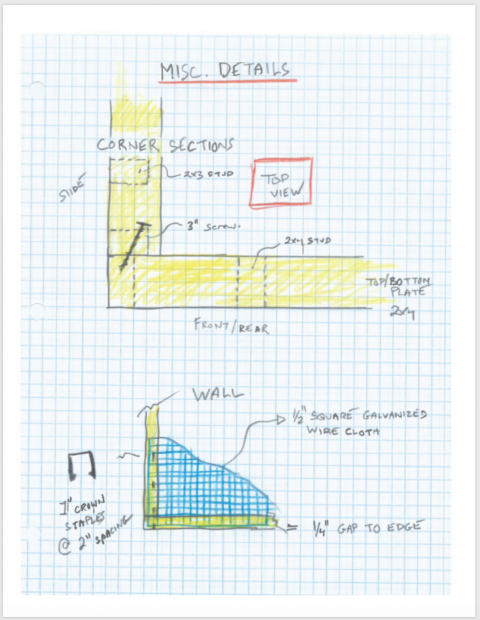 MISC. DETAILS
CORNER SECTIONS
2x3 STUD
SIDE
TOP
VIEW
3" SCREW.
2x4 STUD
TOP/BOTTOM
PLATE
2x4
FRONT/REAR
WALL
1/2" SQUARE GALVANIZED
WIRE CLOTH
1" CROWN
STAPLES
@ 2" SPACING
1/4" GAP TO EDGE